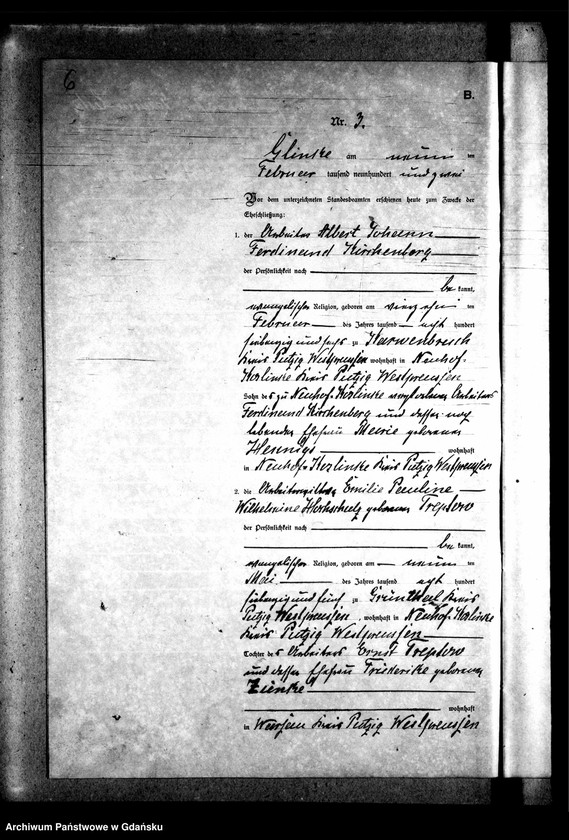 6
B.
Nr. 3.
Glinke am neun ten
Februar tausend neunhundert und zwei
Vor dem unterzeichneten Standesbeamten erschienen heute zum Zwecke der
Eheschließung:
1. der Arbeiter Albert Johann
Ferdinand Kirschenberg
der Persönlichkeit nach
be kannt,
evangelischer Religion, geboren am vierzehn ten
Februar des Jahres tausend acht hundert
siebenzig und sechs zu Karwenbruch
Kreis Putzig Westpreussen wohnhaft in Neuhof-
Kreis Putzig Westpreussen
Sohn des zu Neuhof- verstorbenen Arbeiters
Ferdinand Kirschenberg und dessen noch
lebenden Ehefrau Marie geborenen
Hennigs wohnhaft
in Neuhof- Kreis Putzig Westpreussen
2. die Arbeiterwittwe Emilie Pauline
Wilhelmine geborene Treptow
der Persönlichkeit nach
be kannt,
evangelischer Religion, geboren am neun ten
Mai des Jahres tausend acht hundert
siebenzig und fünf zu Kreis
Putzig Westpreussen, wohnhaft in Neuhof-
Kreis Putzig Westpreussen
Tochter des Arbeiters Ernst Treptow
und dessen Ehefrau Friederike geborenen
wohnhaft
in Kreis Putzig Westpreussen
Archiwum Państwowe w Gdańsku